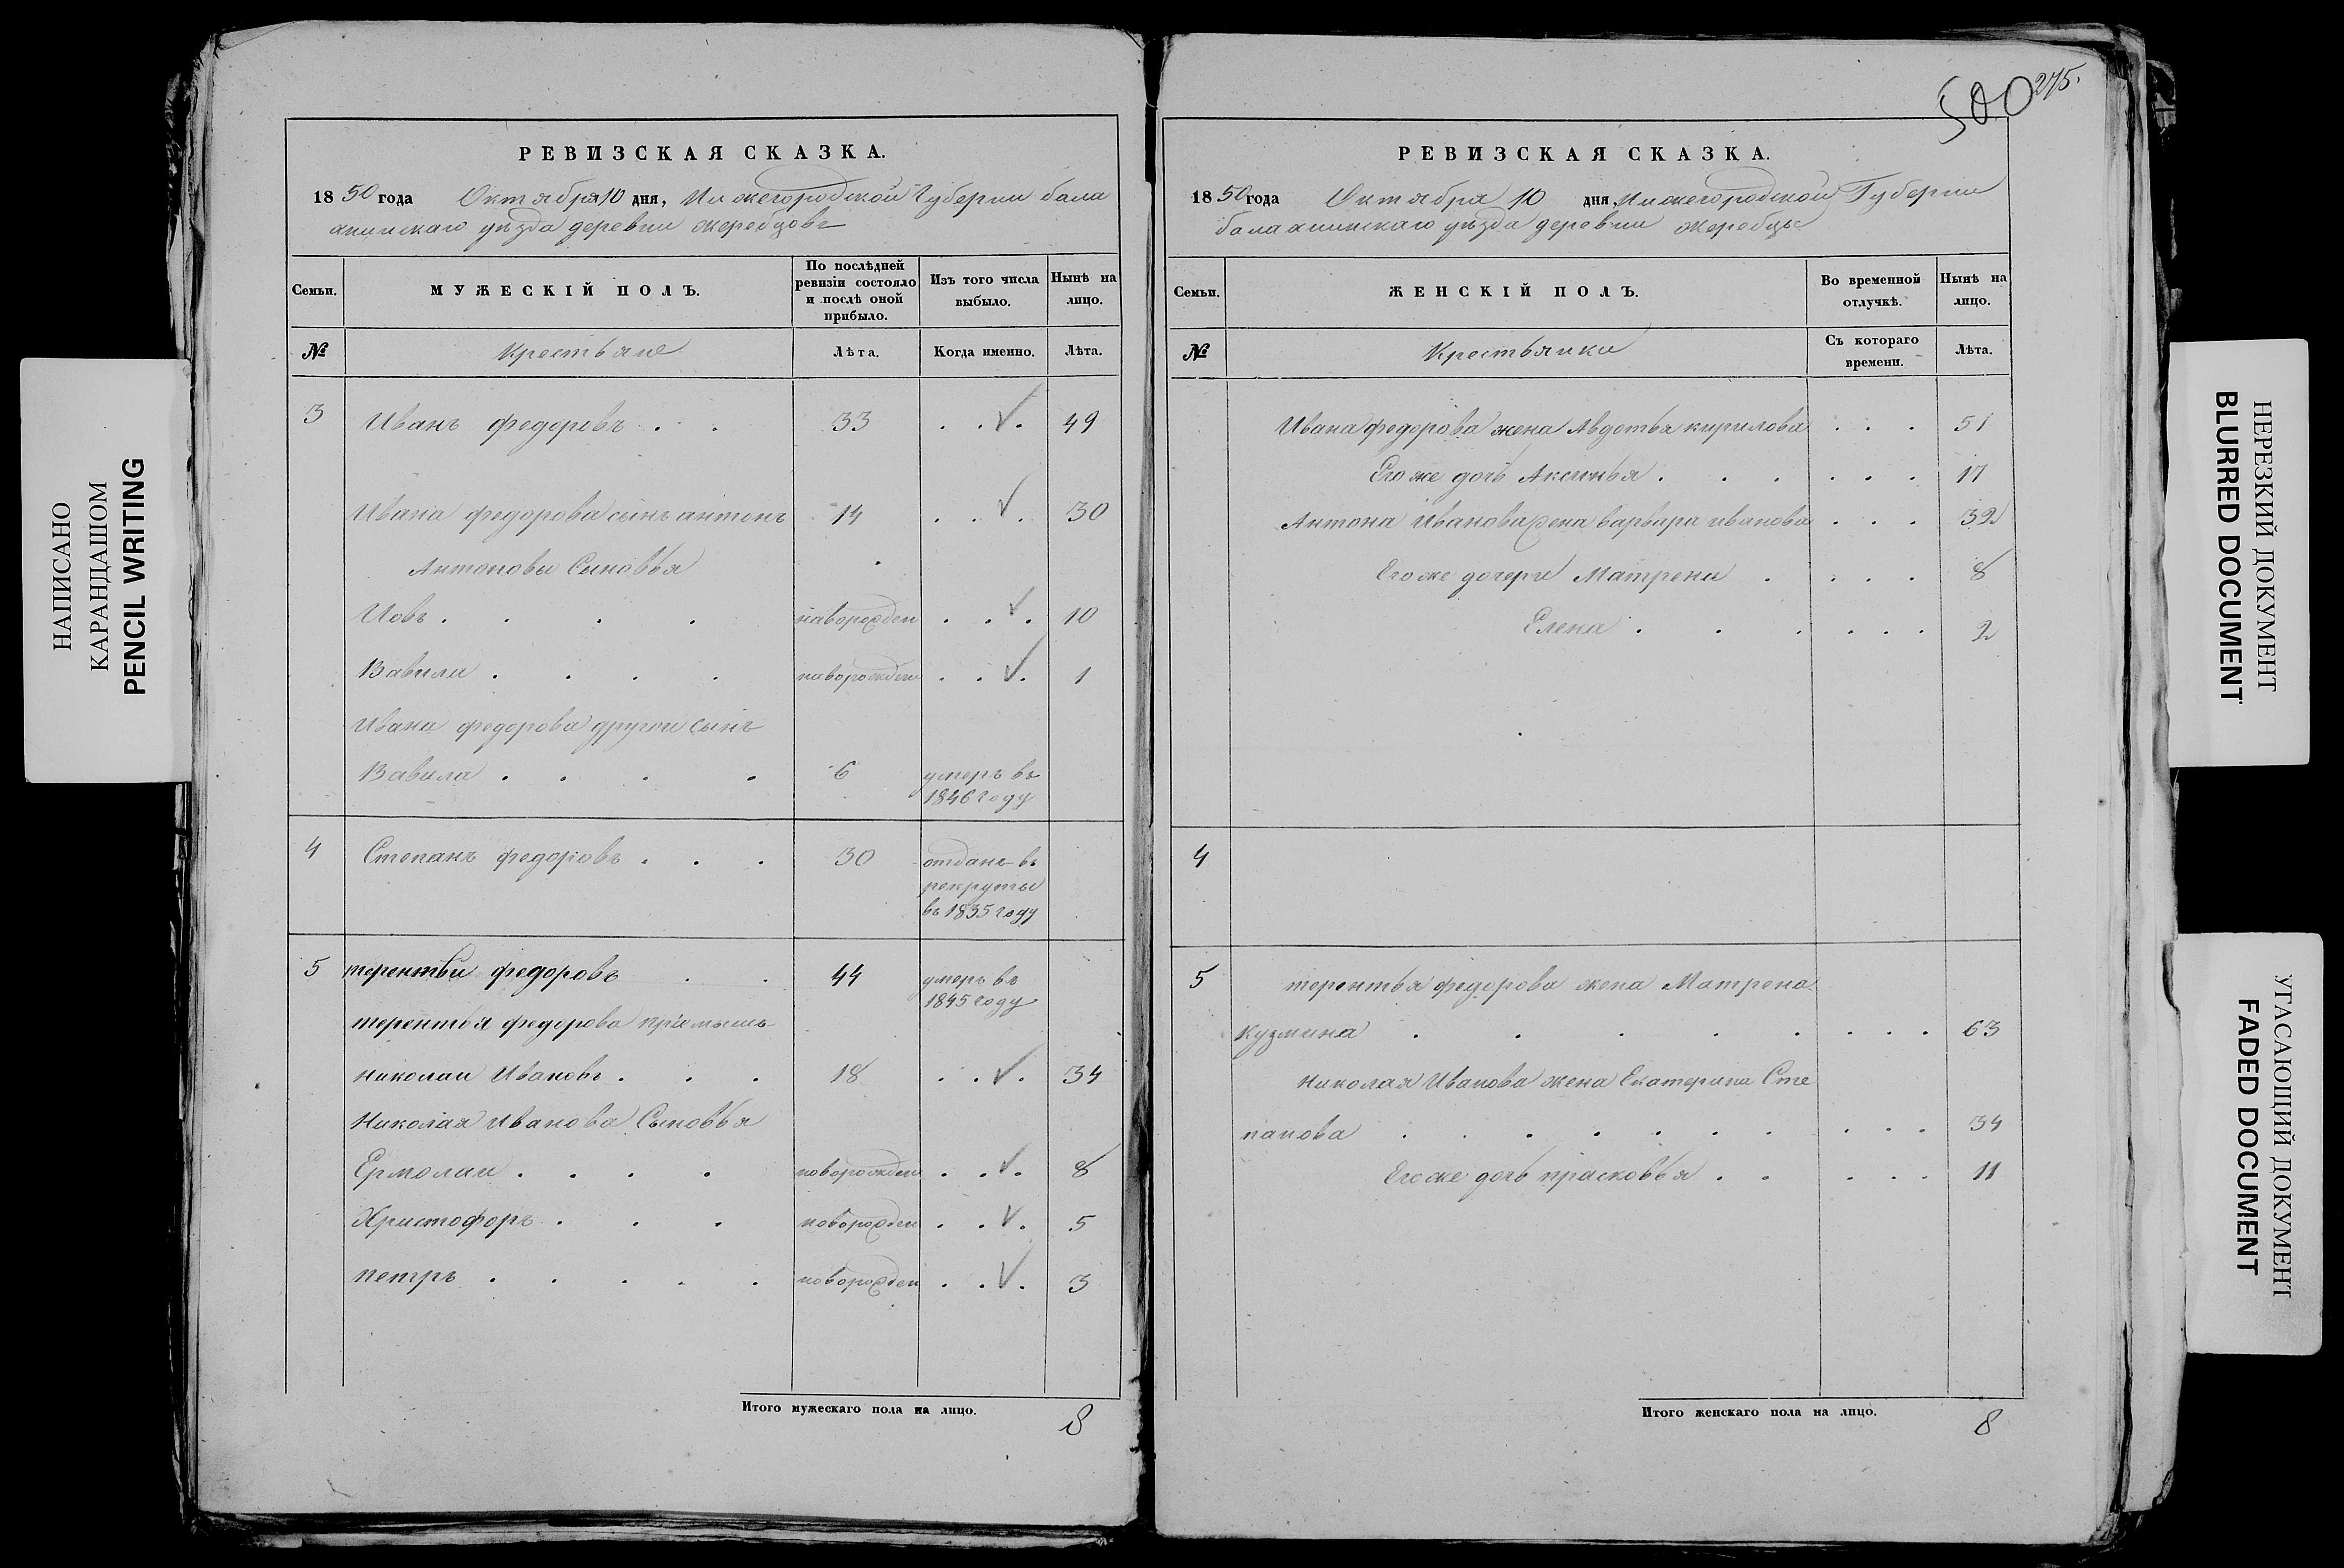 НАПИСАНО
КАРАНДАШОМ
PENCIL WRITING
РЕВИЗСКАЯ СКАЗКА.
1850 года Октября 10 дня, Нижегородской Губернии бала
хнинскаго уѣзда деревни жеребцовъ
Семьи.
МУЖЕСКІЙ ПОЛЪ.
По послѣдней ревизіи состояло и послѣ оной прибыло.
Изъ того числа выбыло.
Нынѣ на лицо.
№ Крестьяне Лѣта. Когда именно. Лѣта.
3 Иванъ федоровъ . . 33 . . . 49
Ивана федорова сынъ антонъ 14 . . . 30
Антоновы Сыновья
Иовъ . . . . наворожден . . . 10
Вавила . . . . наворожден . . . 1
Ивана федорова другои сынъ
Вавила . . . . 6 умеръ въ
1846 году
4 Степанъ федоровъ . . . 30 отданъ въ
рекруты
въ 1835 году
5 терентьи федоровъ . . 44 умеръ въ
1845 году
терентья федорова приимышъ
николаи Ивановъ . . . 18 . . . 34
Николая Иванова Сыновья
Ермолаи . . . . новорожден . . . 8
Христофоръ . . . новорожден . . . 5
петръ . . . . . новорожден . . . 3
Итого мужескаго пола на лицо. 8
500 275.
РЕВИЗСКАЯ СКАЗКА.
1850 года Октября 10 дня, Нижегородской Губернии
балахнинскаго уѣзда деревни жеребцы
Семьи.
ЖЕНСКІЙ ПОЛЪ.
Во временной отлучкѣ.
Нынѣ на лицо.
№ Крестьянки Съ котораго времени. Лѣта.
Ивана федорова жена Авдотья кирилова . . . 51
Его же дочь Аксинья . . . . . . 17
Антона Иванова жена варвара иванова . . . 32
Его же дочери Матрена . . . . 8
Елена . . . . . . 2
4
5 терентья федорова жена Матрена
кузмина . . . . . . . . 63
николая Иванова жена Екатерина Сте
панова . . . . . . . . . . 34
Его же дочь прасковья . . . . . 11
Итого женскаго пола на лицо. 8
НЕРЕЗКИЙ ДОКУМЕНТ
BLURRED DOCUMENT
УГАСАЮЩИЙ ДОКУМЕНТ
FADED DOCUMENT